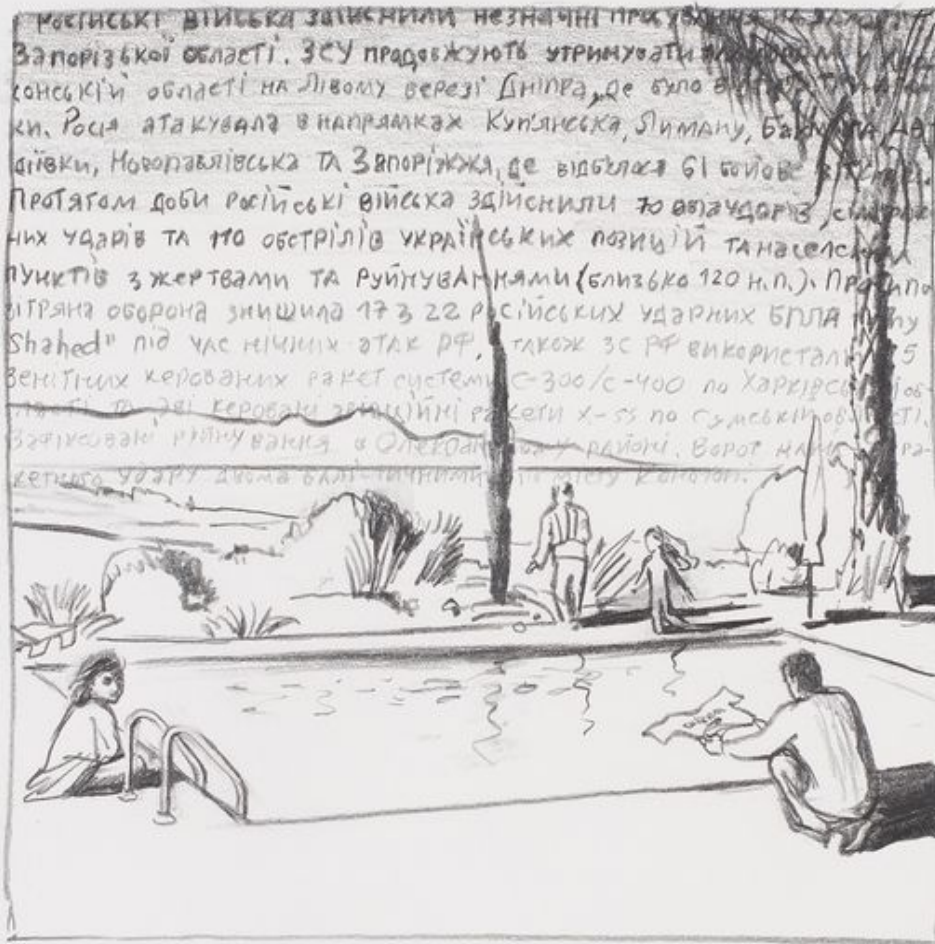 Російські війська здійснили незначні просування на заході
Запорізької області. ЗСУ продовжують утримувати
сонській області на Лівому березі Дніпра, де було
ки. Росія атакувала в напрямках Куп'янська, Лиману,
діївки, Новопавлівська та Запоріжжя, де відбулося 61 бойове
Протягом доби російські війська здійснили 70 авіаударів,
них ударів та 110 обстрілів українських позицій та населених
пунктів з жертвами та руйнуваннями (близько 120 н.п.). Протипо
вітряна оборона знищила 17 з 22 російських ударних БПЛА типу
Shahed" під час нічних атак РФ, також ЗС РФ використали 5
зенітних керованих ракет системи С-300/С-400 по Харківській об-
ласті та дві керовані авіаційні ракети Х-59 по Сумській області.
Зафіксовані руйнування в районі. Ворог ра-
кетного удару двома балістичними по місту Конотоп.